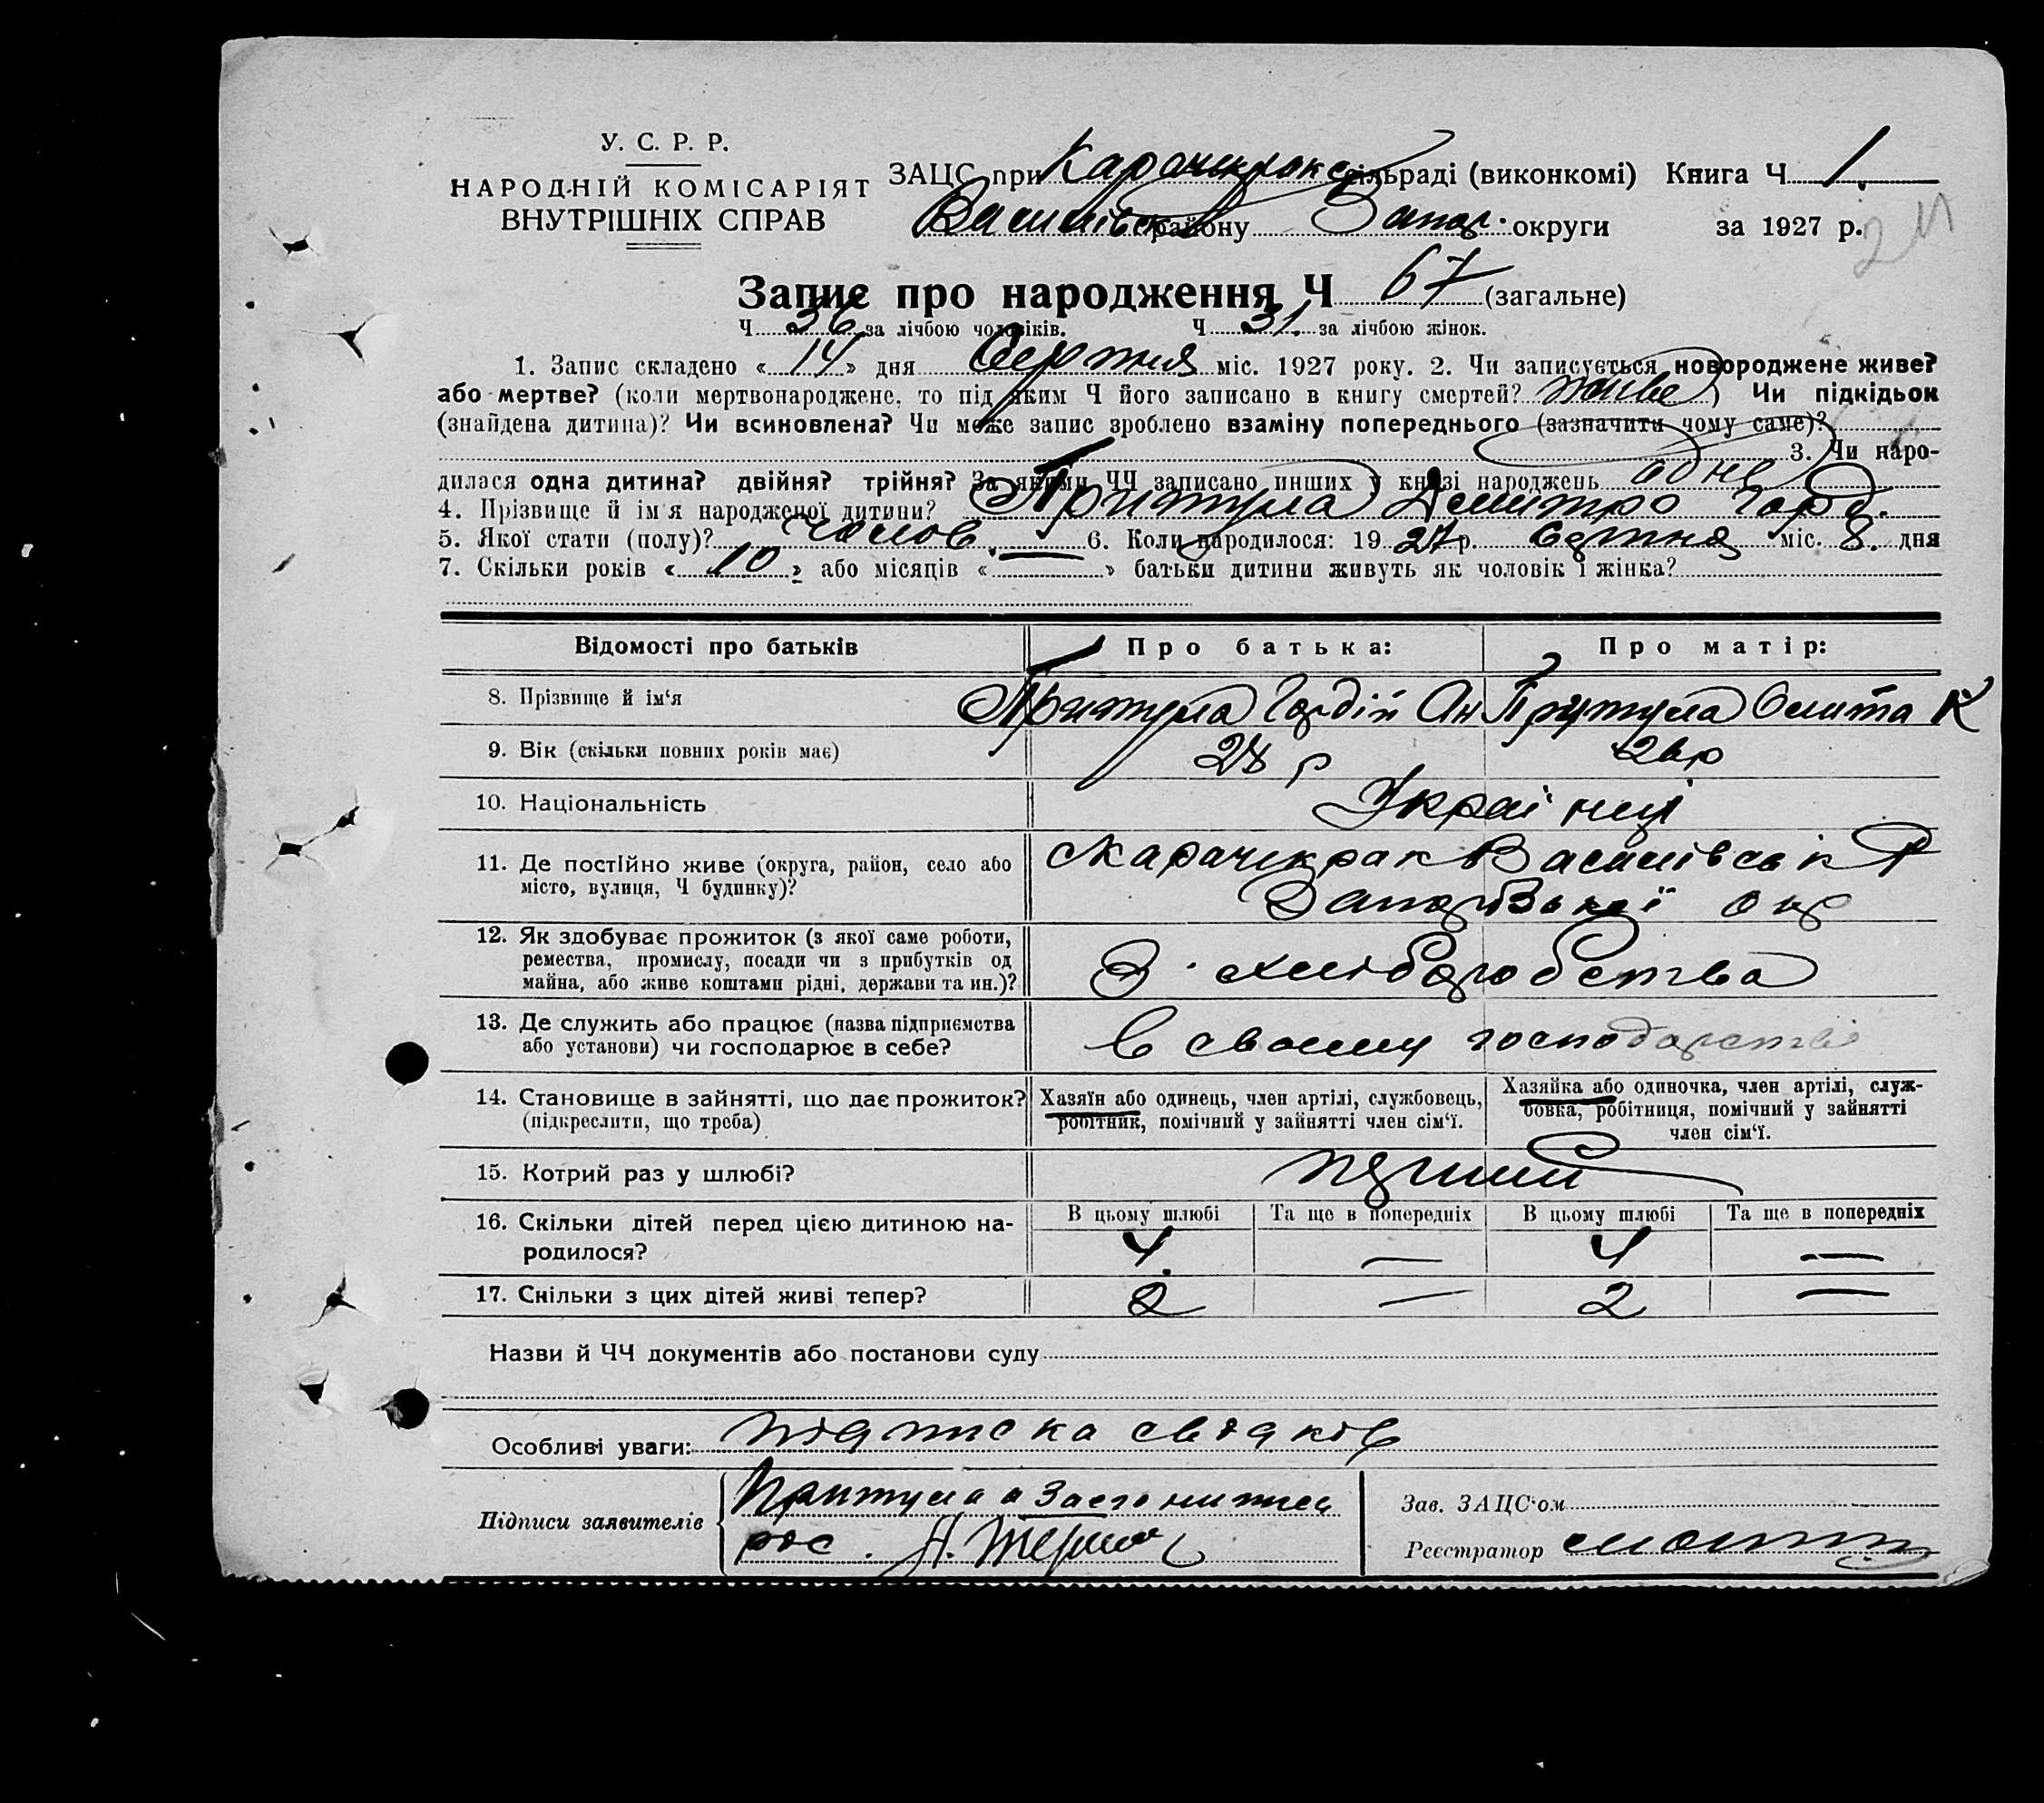 У. С. Р. Р.
НАРОДНІЙ КОМІСАРІЯТ
ВНУТРІШНІХ СПРАВ
ЗАЦС при Карачекрак сільраді (виконкомі) Книга Ч 1.
Василівськ району Запор. округи за 1927 р.
Запис про народження Ч 67 (загальне)
Ч 36 за лічбою чоловіків. Ч 31. за лічбою жінок.
1. Запис складено « 14 » дня Серпня міс. 1927 року. 2. Чи записується новороджене живе?
або мертве? (коли мертвонароджене, то під яким Ч його записано в книгу смертей? живе ) Чи підкідьок
(знайдена дитина)? Чи всиновлена? Чи може запис зроблено взаміну попереднього (зазначити чому саме)?
3. Чи наро-
дилася одна дитина? двійня? трійня? За якими ЧЧ записано инших у книзі народжень одне
4. Прізвище й ім'я народженої дитини? Притула Дмитро Горд.
5. Якої стати (полу)? чолов. 6. Коли народилося: 19 27 р. Серпня міс. 8. дня
7. Скільки років « 10 » або місяців « — » батьки дитини живуть як чоловік і жінка?
Відомості про батьків Про батька: Про матір:
8. Прізвище й ім'я Притула Гордій Ан Притула К
9. Вік (скільки повних років має) 28 р 26 р
10. Національність Українці
11. Де постійно живе (округа, район, село або Карачекрак Василівськ Р
місто, вулиця, Ч будинку)? Запорізької окр
12. Як здобуває прожиток (з якої саме роботи,
ремества, промислу, посади чи з прибутків од З хліборобства
майна, або живе коштами рідні, держави та ин.)?
13. Де служить або працює (назва підприємства
або установи) чи господарює в себе? в своему господарстві
14. Становище в зайнятті, що дає прожиток? Хазяїн або одинець, член артілі, службовець, Хазяйка або одиночка, член артілі, служ-
(підкреслити, що треба) робітник, помічний у зайнятті член сім'ї. бовка, робітниця, помічний у зайнятті
член сім'ї.
15. Котрий раз у шлюбі? перший
16. Скільки дітей перед цією дитиною на- В цьому шлюбі Та ще в попередніх В цьому шлюбі Та ще в попередніх
родилося? 4. — 4 —
17. Скільки з цих дітей живі тепер? 2 — 2 —
Назви й ЧЧ документів або постанови суду
Особливі уваги: підписка свідків
Підписи заявителів Притула а за его
рос.
Зав. ЗАЦС'ом
Реєстратор